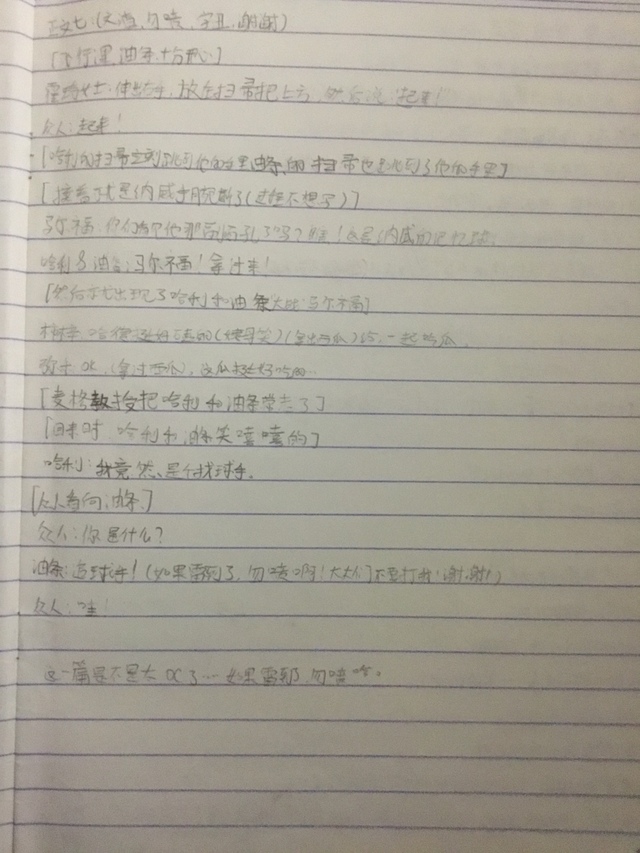 正文七:(文渣,勿喷,字丑,谢谢)
[飞行课,油条十分开心]
霍琦女士:伸出右手,放在扫帚把上方,然后说"起来!"
众人:起来!
[哈利的扫帚立刻跳到他的手里,油条的扫帚也跳到了他的手里]
[接着就是纳威手腕断了(过程不想写)]
马尔福:你们看见他那副 了吗?瞧!这是纳威的记忆球
哈利&油条:马尔福!拿过来!
[然后就出现了哈利和油条大战马尔福]
哈 挺 的(姨母笑)(拿出西瓜)巧,一起吃瓜
OK,(拿过西瓜),这瓜挺好吃的…
[麦格教授把哈利和油条带走了]
[回来时,哈利和油条笑嘻嘻的]
哈利:我竟然是个找球手。
[众人看向油条]
众人:你是什么?
油条:追球手!(如果雷到了,勿喷啊!大大们不要打我!谢谢!)
众人:哇!
这一篇是不是太OC了…如果雷到,勿喷哈。